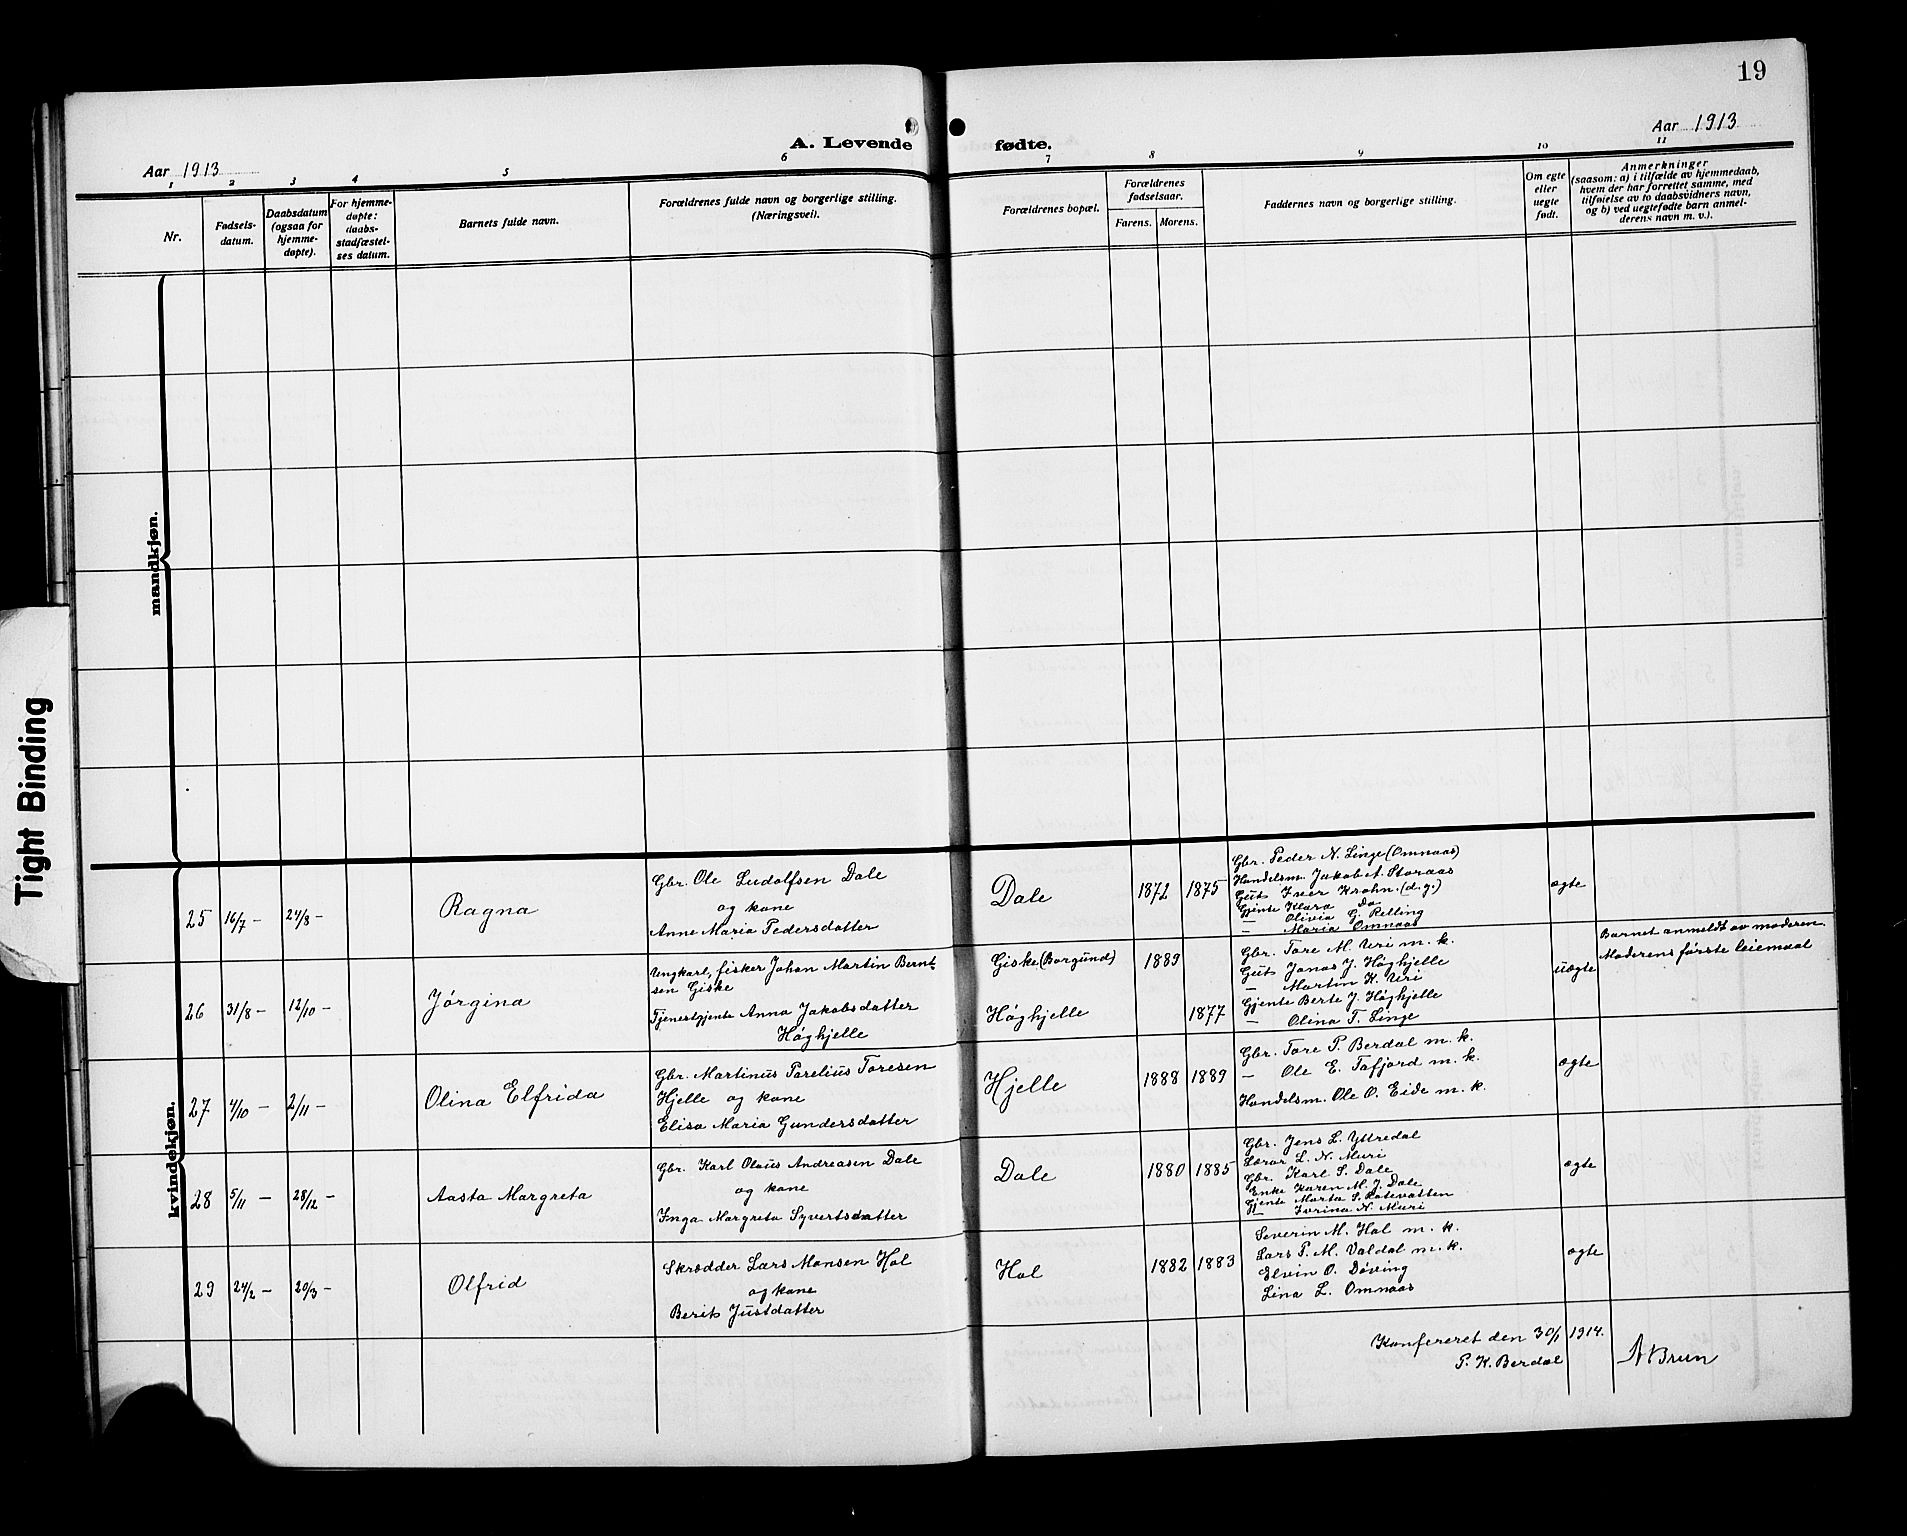 19
Aar 1913
A. Levende fødte.
Aar 1913
1 2 3 4 5 6 7 8 9 10 11
Nr.
Fødsels-
datum.
Daabsdatum
(ogsaa for
hjemme-
døpte).
For hjemme-
døpte:
daabs-
stadfæstel-
ses datum.
Barnets fulde navn.
Forældrenes fulde navn og borgerlige stilling.
(Næringsvei).
Forældrenes bopæl.
Forældrenes
fødselsaar.
Farens. Morens.
Faddernes navn og borgerlige stilling.
Om egte
eller
uegte
født.
Anmerkninger
(saasom: a) i tilfælde av hjemmedaab,
hvem der har forrettet samme, med
tilføielse av to daabsvidners navn,
og b) ved uegtefødte barn anmel-
derens navn m. v.).
mandkjøn.
Tight Binding
kvindekjøn.
25 16/7 - 24/8 - Ragna
Gbr. Ole Ludolfsen Dale
og kone
Anne Maria Pedersdatter
Dale 1872 1875
Gbr. Peder N. Linge (Omnaas)
Handelsm. Jakob A. Storaas
Gut Iver Krohn. (d.y.)
Gjente Klara Do
— Olivia G. Relling
— Maria Omnaas
ægte
26 31/8 - 12/10 - Jørgina
Ungkarl, fisker Johan Martin Bernt-
sen Giske
Tjenestgjente Anna Jakobsdatter
Høghjelle
Giske (Borgund) 1889
Høghjelle 1877
Gbr. Tore M. Uri m. k.
Gut Jonas J. Høghjelle
— Martin K. Uri
Gjente Berte J. Høghjelle
— Olina T. Linge
uægte
Barnet anmeldt av moderen.
Moderens første leiemaal
27 4/10 - 2/11 - Olina Elfrida
Gbr. Martinus Parelius Toresen
Hjelle og kone
Elisa Maria Gundersdatter
Hjelle 1888 1889
Gbr. Tore P. Berdal m. k.
— Ole E. Tafjord m. k.
Handelsm. Ole O. Eide m. k.
ægte
28 5/11 - 28/12 - Aasta Margreta
Gbr. Karl Olaus Andreasen Dale
og kone
Inga Margreta Syvertsdatter
Dale 1880 1885
Gbr. Jens L. Yttredal
Lærer L. N. Muri
Gbr. Karl S. Dale
Enke Karen M. J. Dale
Gjente Marta S. Rotevatten
— Ivrina N. Muri
ægte
29 24/2 - 20/3 - Olfrid
Skrædder Lars Monsen Hol
og kone
Berit Justdatter
Hol 1882 1883
Severin M. Hol m. k.
Lars P. M. Valdal m. k.
Elvin O. Døving
Lina L. Omnaas
ægte
Konfereret den 30/1 1914.
P. K. Berdal
A Brun